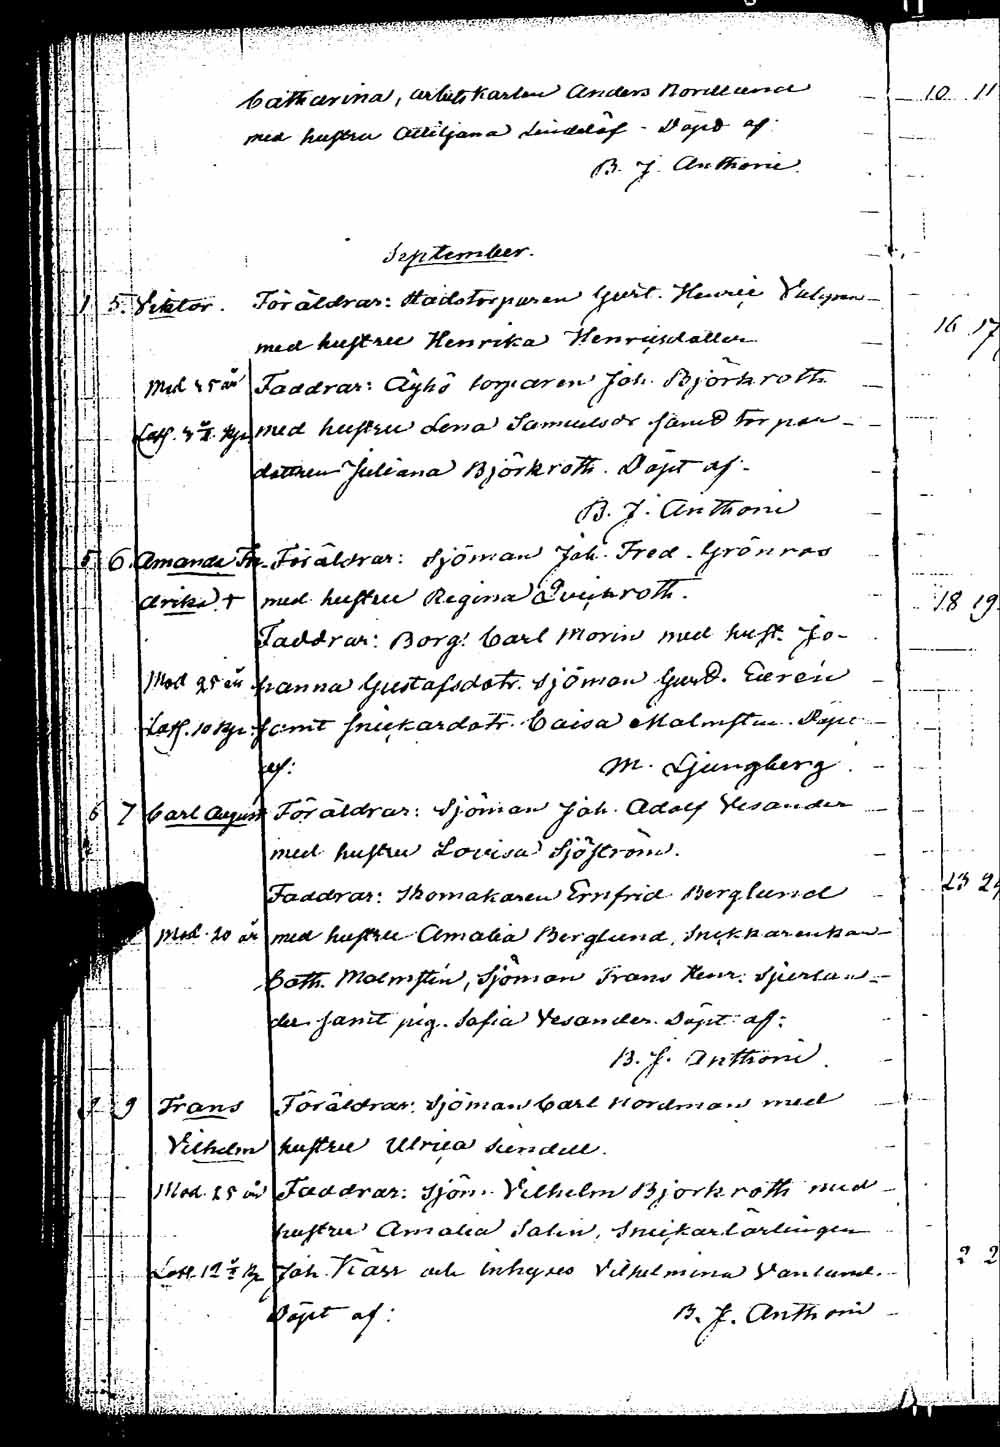 Catharina, arbetskarlen Anders Nordlund
med hustru Lindelöf - Döpt af:
B. J. Anthoni.
10 11
September.
1 5. Viktor. Föräldrar: Stadstorparen Gust. Henric
med hustru Henrika Henricsdotter
16 17
Mod. 25 år Faddrar: torparen Joh. Björkroth
med hustru Lena Samuelsdr samt torpar-
dottren Juliana Björkroth. Döpt af-
B. J. Anthoni
5 6 Amanda Fre- Föräldrar: Sjöman Joh. Fred. Grönroos
drika. + med hustru Regina Qvickroth.
18 19
Faddrar: Borg. Carl Morin med hust. Jo-
Mod 25 år hanna Gustafsdotr. Sjöman Gust.
samt snickardotr. Caisa Malmsten. Döpt
af: M. Ljungberg.
6 7 Carl August Föräldrar: Sjöman Joh. Adolf Vesander
med hustru Lovisa Sjöström.
Faddrar: Skomakaren Ernfrid Berglund
23 24
Mod. 20 år med hustru Amalia Berglund,
Cath. Malmstén, Sjöman Frans Henr.
samt pig. Sofia Vesander. Döpt af:
B. J. Anthoni.
9 Frans Föräldrar: Sjöman Carl Nordman med
Vilhelm hustru Ulrica Sundell.
Mod. 25 år Faddrar: Sjöm. Vilhelm Björkroth med
hustru Amalia Salin, Snickarlärlingen
2 2
Joh. och inhyses Vilhelmina
Döpt af: B. J. Anthoni